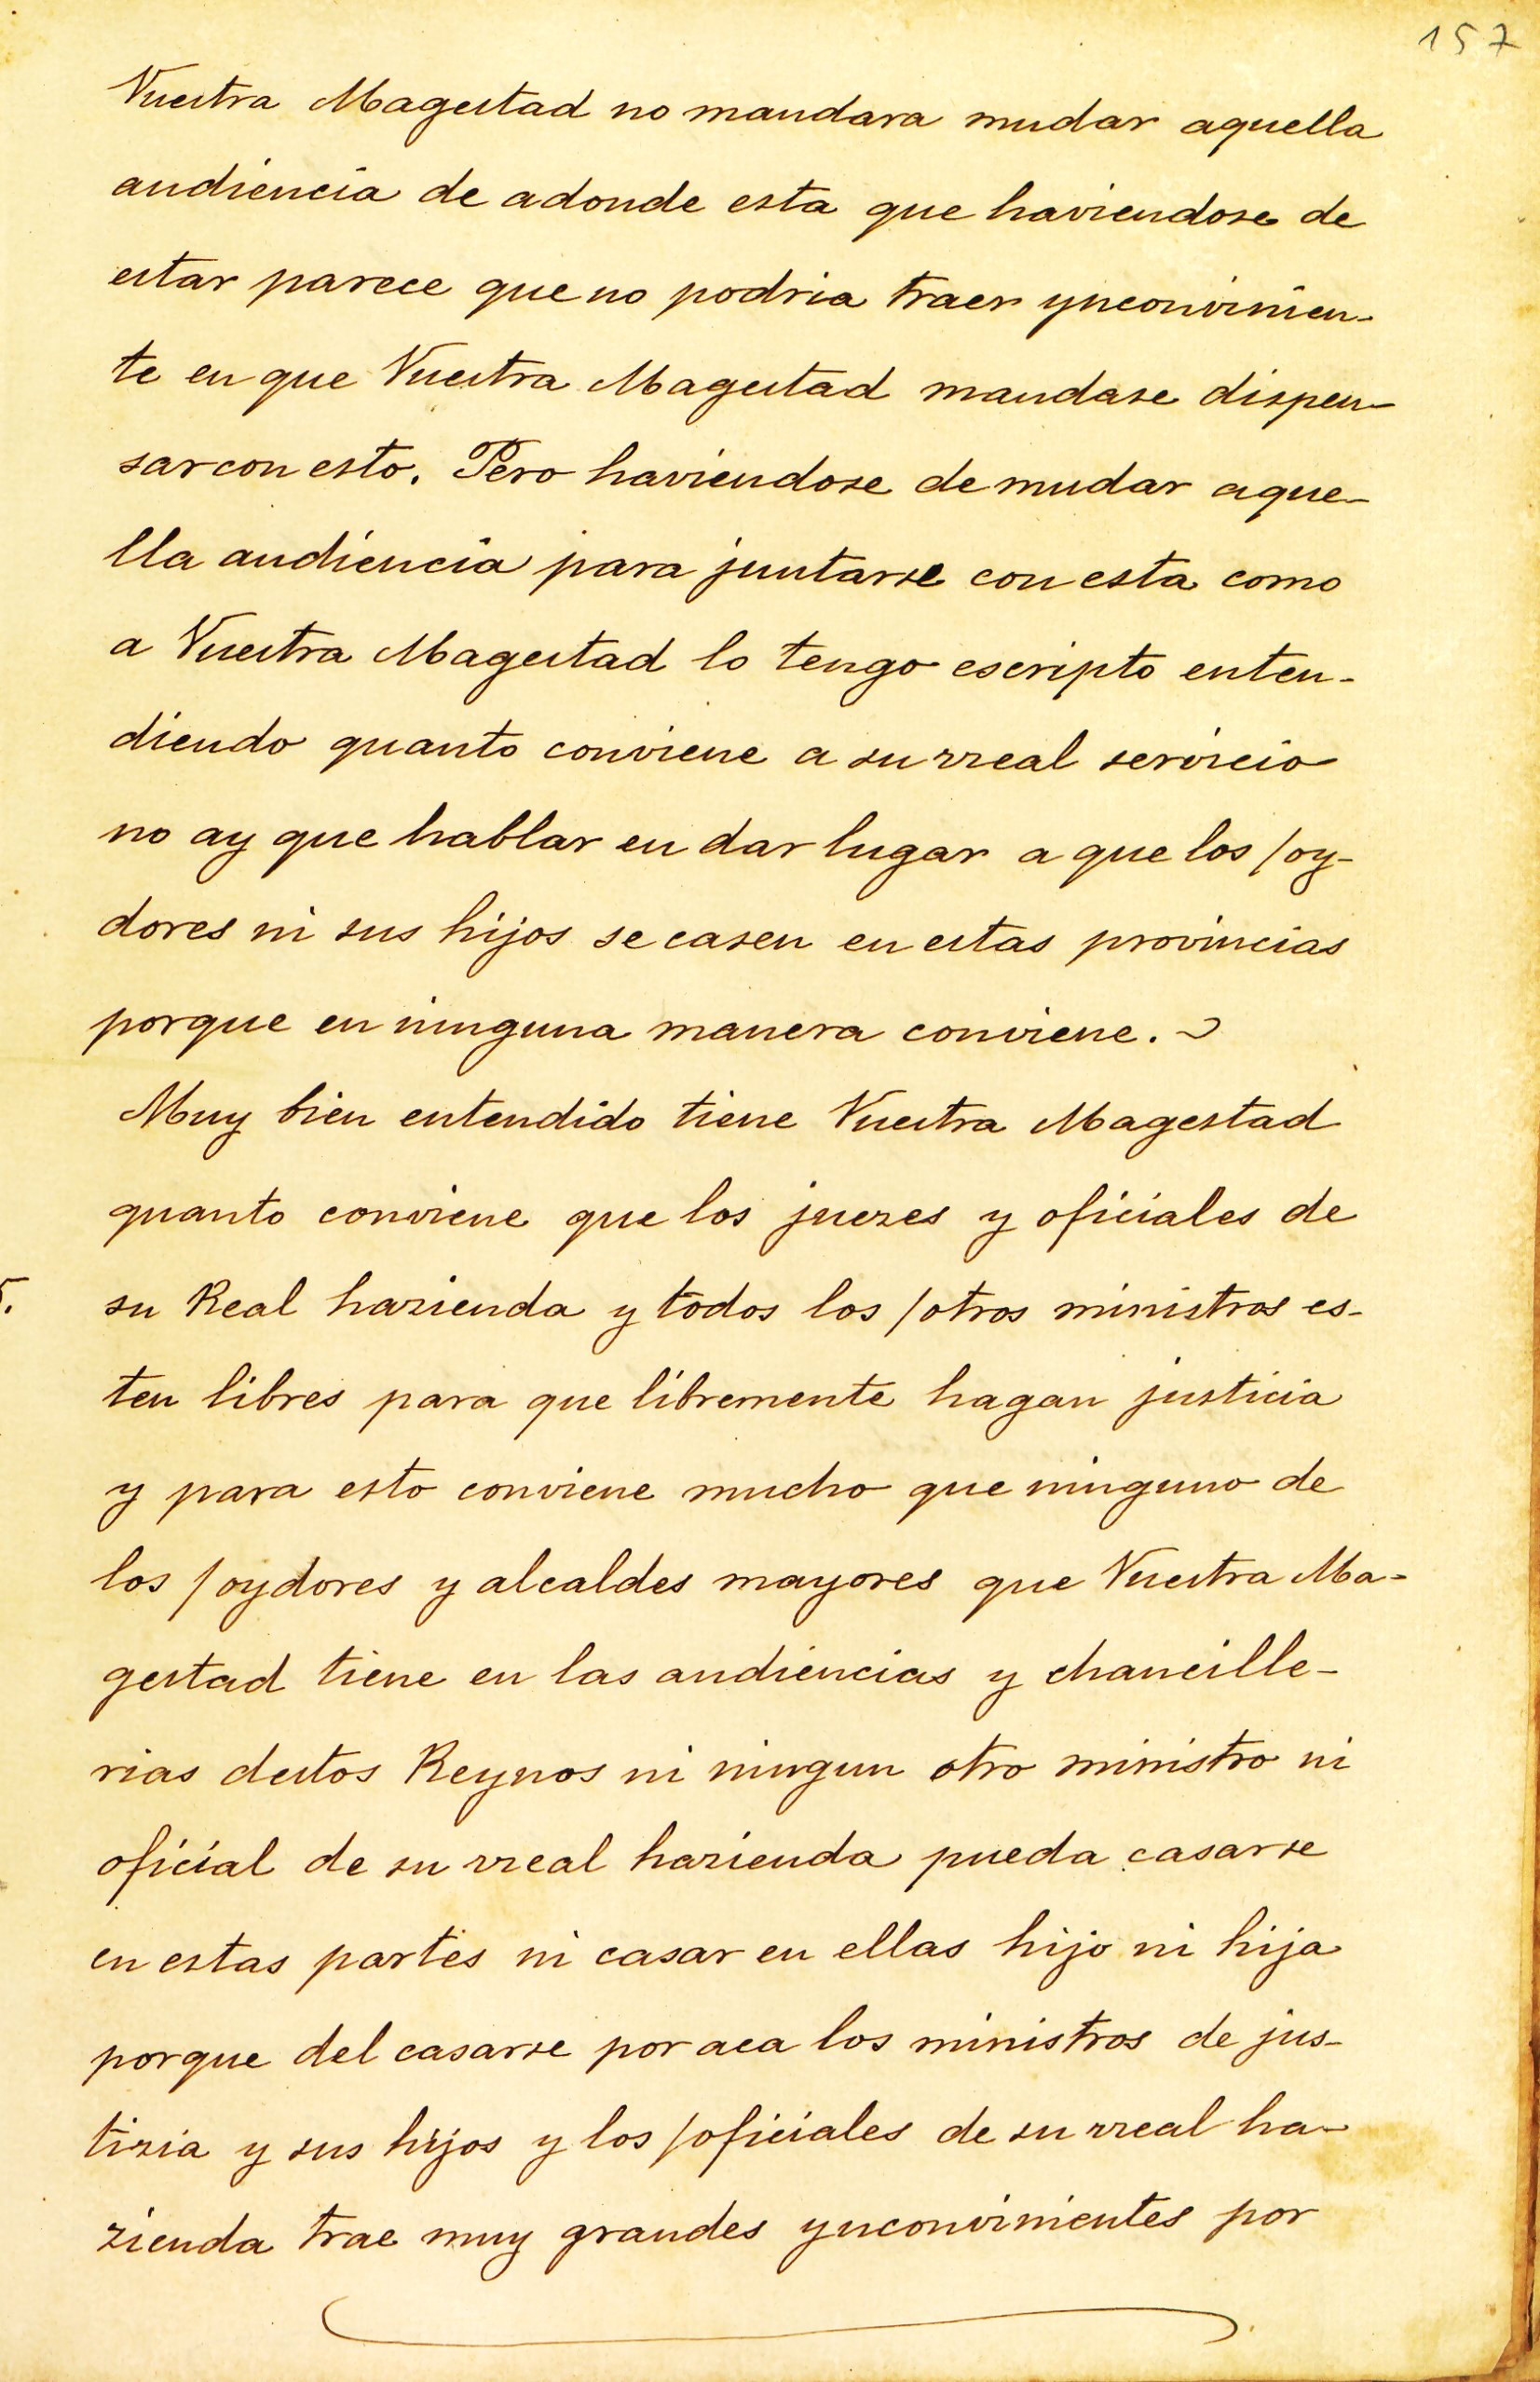 157
Vuestra Magestad no mandara mudar aquella
audiencia de adonde esta que haviendose de
estar parece que no podria traer ynconvinien-
te en que Vuestra Magestad mandase dispen-
sar con esto. Pero haviendose de mudar aque-
lla audiencia para juntarse con esta como
a Vuestra Magestad lo tengo escripto enten-
diendo quanto conviene a su rreal servicio
no ay que hablar en dar lugar a que los /oy-
dores ni sus hijos se casen en estas provincias
porque en ninguna manera conviene.
Muy bien entendido tiene Vuestra Magestad
quanto conviene que los juezes y oficiales de
su Real hazienda y todos los /otros ministros es-
ten libres para que libremente hagan justicia
y para esto conviene mucho que ninguno de
los /oydores y alcaldes mayores que Vuestra Ma-
gestad tiene en las audiencias y chancille-
rias destos Reynos ni ningun otro ministro ni
oficial de su rreal hazienda pueda casarse
en estas partes ni casar en ellas hijo ni hija
porque del casarse por aca los ministros de jus-
tizia y sus hijos y los /oficiales de su rreal ha-
zienda trae muy grandes ynconvinientes por